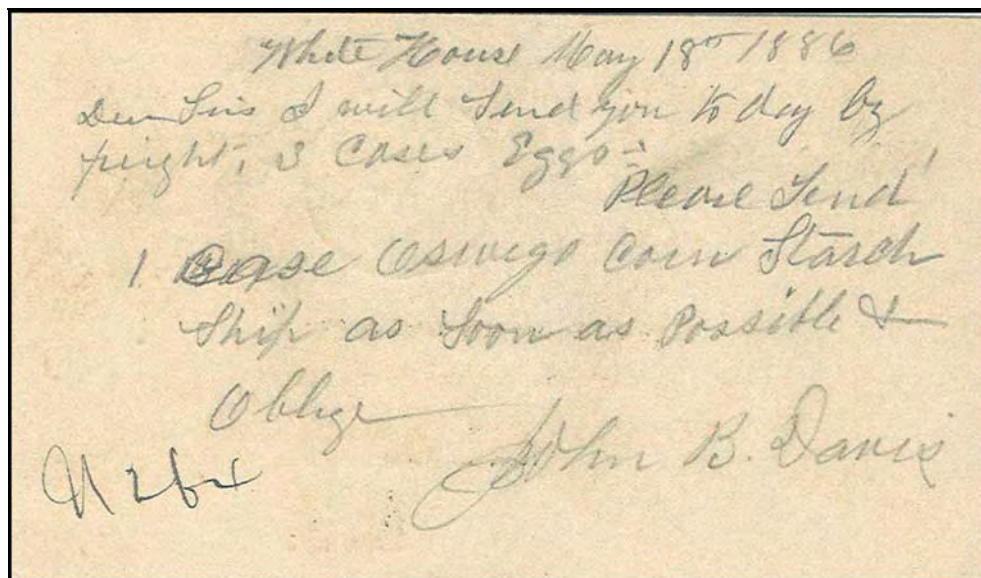 White House May 18th 1886
Dear Sirs I will Send you to day by
freight, 3 Cases Eggs -
Please Send
1 Case Oswego Corn Starch
Ship as Soon as Possible &
Oblige
John B. Davis